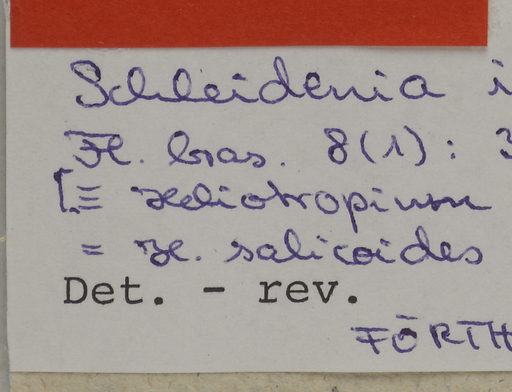 Schleidenia i
Fl. bras. 8(1): 3
[≡ Heliotropium
= H. salicoides
Det. - rev.
FÖRTH